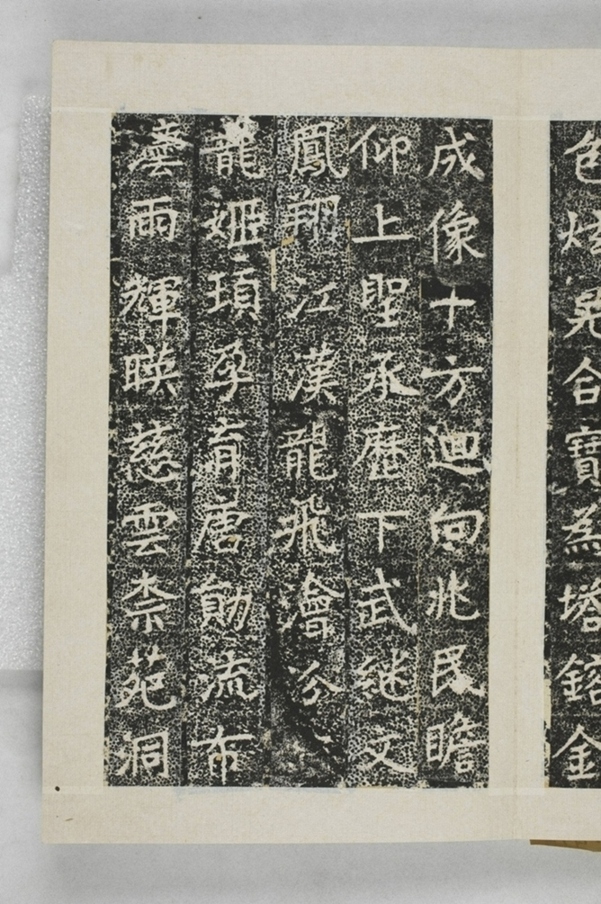 色炫晃合寶為塔鎔金
成像十方迴向兆民瞻
仰上聖承歷下武継文
鳳翔江漢龍飛澮汾
龍姬頊孕育唐勛流布
雨輝暎慈雲柰苑洞